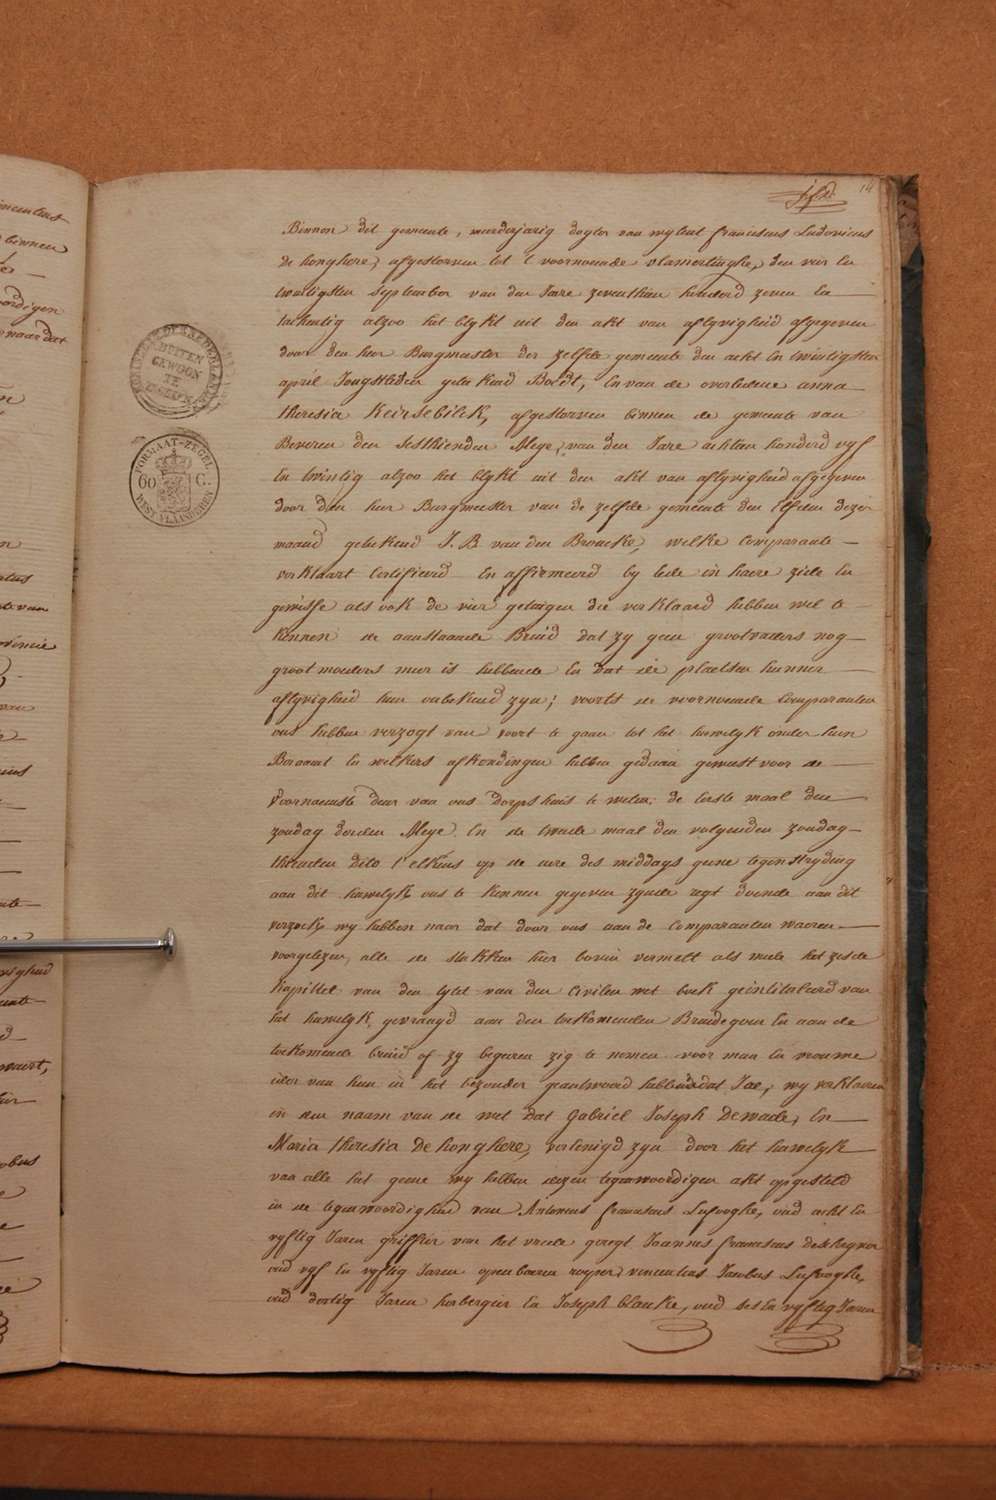 14
Binnen dit gemeente, meerderjarig dogter van wylent franciscus Ludovicus
de honghere, afgestorven tot 't voornoemde vlamertinghe, den vier en
twintigsten september van den Jare zeventhien honderd zeven en
tachentig alzoo het blykt uit den akt van aflyvigheid afgegeven
door den heer Burgmeester der zelfde gemeente den acht en twintigsten
april Jongstleden getekend Boedt, en van de overledene anna
theresia Keirsebilck, afgestorven binnen de gemeente van
Beveren den sesthienden Meye, van den Jare achtien honderd vyf
en twintig alzoo het blykt uit den akt van aflyvigheid afgegeven
door den heer Burgmeester van de zelfde gemeente den elfsten dezer
maand getekend J. B. van den Broucke, welke Comparante
verklaart Certifieerd en affirmeerd by eede in haere ziele en
gewisse als ook de vier getuigen die verklaard hebben wel te
kennen de aanstaande Bruid dat zy geen grootvaders nog
groot moeders meer is hebbende en dat de plaetsen hunner
aflyvigheid hun onbekend zyn; voorts de voornoemde Comparanten
ons hebben verzogt van voort te gaan tot het huwelyk onder hun
Beraamt en welkers afkondingen hebben gedaan geweest voor de
voornaemste deur van ons dorpshuis te weten: de eerste maal den
zondag derden Meye en de tweede maal den volgenden zondag
thienden dito t'elkens op de uere des middags geene tegenstryding
aan dit huwelyk ons te kennen gegeven zynde regt doende aan dit
verzoek, wy hebben naar dat door ons aan de Comparanten waeren
voorgelezen, alle de stukken hier boven vermelt als mede het zesde
Kapittel van den tytel van den Civilen wet boek geintituleerd van
het huwelyk, gevraagd aan den toekomenden Bruidegom en aan de
toekomende bruid of zy begeeren zig te nemen voor man en vrouwe
ider van hun in het bezonder geantwoord hebbende dat Jae, wy verklaeren
in den naam van de wet dat Gabriel Joseph Dewaele, en
Maria theresia De honghere, vereenigd zyn door het huwelyk
van alle het geene wy hebben dezen tegenwoordigen akt opgesteld
in de tegenwoordigheid van Antonius franciscus Lefooghe, oud acht en
vyftig Jaren griffier van het vrede geregt Joannes franciscus
oud vyf en vyftig Jaren openbaeren roeper, vincentius Jacobus Lefooghe,
oud dertig Jaren herbergier en Joseph blancke, oud ses en vyftig Jaren
BUITEN
GEWOON
TE
FORMAAT-ZEGEL
60 C.
WEST VLAANDEREN